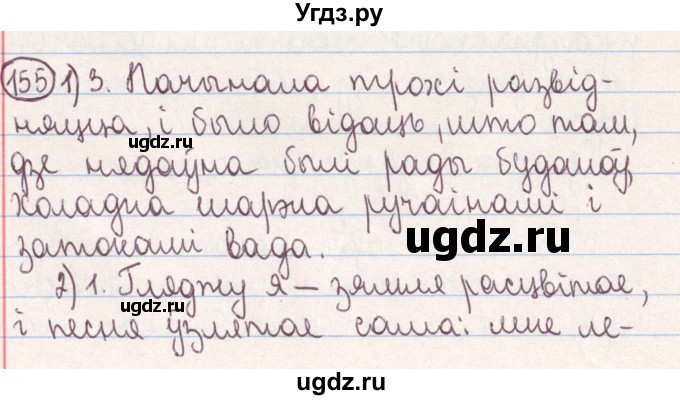 Угдз.ру
155 1) 3. Пачынала трохі развід-
няцца, і было відаць, што там,
дзе нядаўна былі рады буданоў,
халадна шаржа ручаінамі і
затокамі вада.
2) 1. Гляджу я — зямля расцвітае,
і песня ўзлятае сама: мне ле-
ugdz.ru
ugdz.ru
ugdz.ru
ugdz.ru